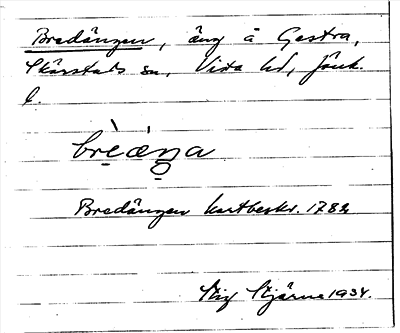 Bredängen, äng å Gestra,
Skärstads sn, Vista hd, Jönk.
l.
brèǽŋa
Bredängen kartbeskr. 1782
Stig Stjärne 1934.